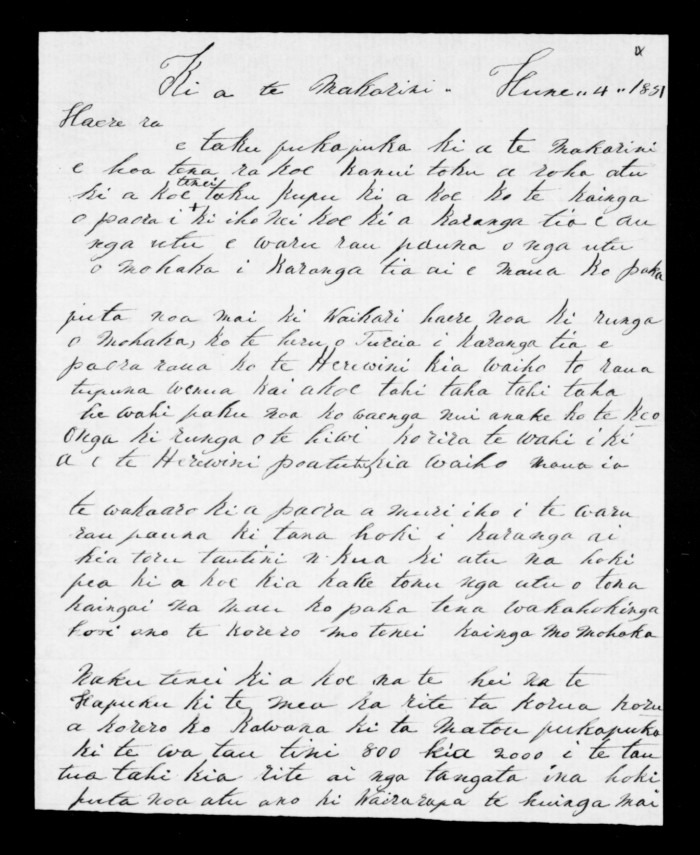 Ki a te Makarini - Hune " 4 " 1851
Haere ra
e taku pukapuka ki a te makarini
e hoa tena ra koe kanui toku a roha atu
ki a koe tenei taku kupu ki a koe ko te kainga
o paora i ki iho nei koe ki a karanga tia e au
nga utu e waru rau pauna o nga utu
o mohaka i karanga tia ai e maua ko paka
puta noa mai ki Waikari haere noa ki runga
o Mohaka, ko te huru o Turia i karanga tia e
paora raua ko te Herewini kia waiho to raua
tupuna wenua kai a koe tahi taha tahi taha
he wahi paku noa ko waenga nui anake ko te
onga ki runga o te hiwi korira te wahi i ki
a i te Herewini kia waiho maua ia
te wakaaro ki a paora a muri iho i te waru
rau pauna ki tana hoki i karanga ai
kia toru tautini n kua ki atu na hoki
pea ki a koe kia kake tonu nga utu o tona
kainga i na mau ko paka tena wakahokinga
ano te korero mo tenei kainga mo mohaka
Naku tenei ki a koe na te hei na te
Hapuku ki te mea ka rite ta korua koru
a korero ko Kawana ki ta Matou pukapuka
ki te wa tau tini 800 kia 2000 i te tau
tua tahi kia rite ai nga tangata ina hoki
puta noa atu ano ki Wairarapa te huinga mai